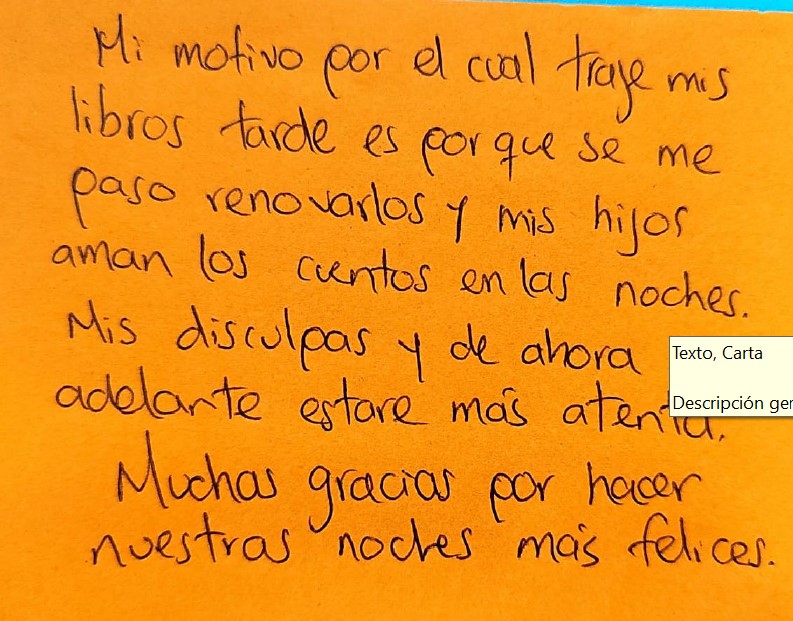 Mi motivo por el cual traje mis
libros tarde es porque se me
paso renovarlos y mis hijos
aman los cuentos en las noches.
Mis disculpas y de ahora
adelante estare más atenta.
Muchas gracias por hacer
nuestras noches más felices.
Texto, Carta
Descripción ger